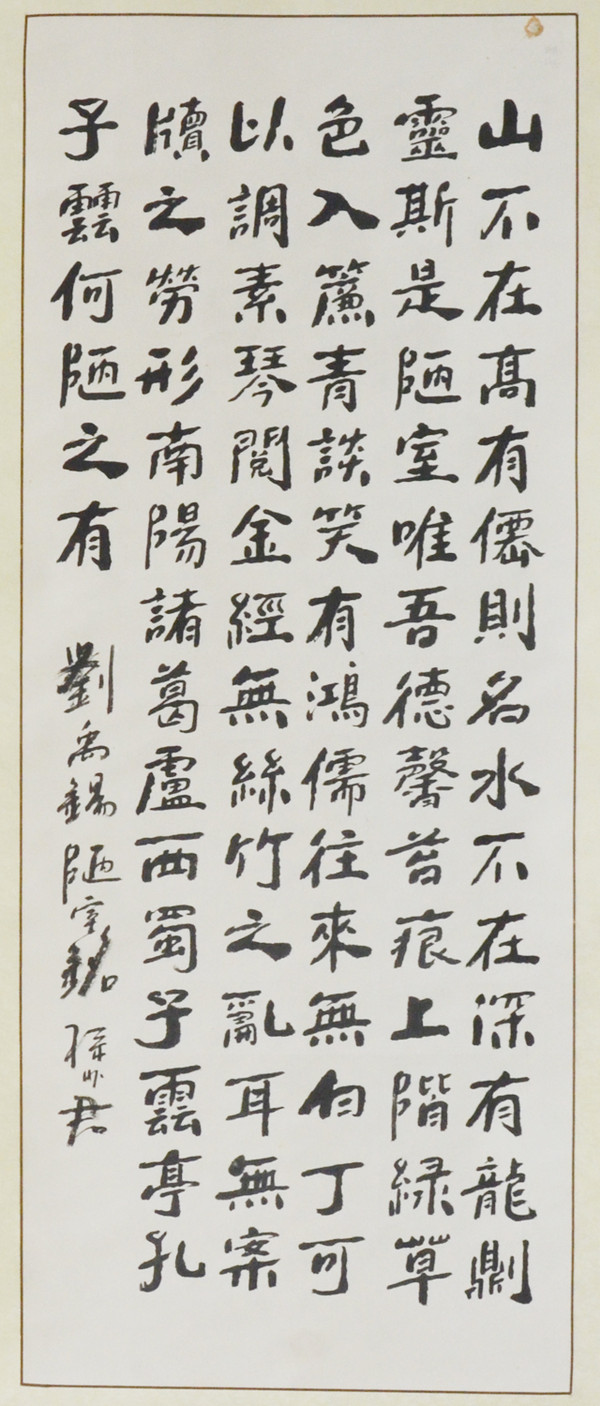 山不在髙有僊則名水不在深有龍則
靈斯是陋室唯吾德馨苔痕上階緑草
色入簾青談笑有鴻儒往來無白丁可
以調素琴閲金經無絲竹之亂耳無案
牘之勞形南陽諸葛廬西蜀子雲亭孔
子雲何陋之有 劉禹錫陋室銘